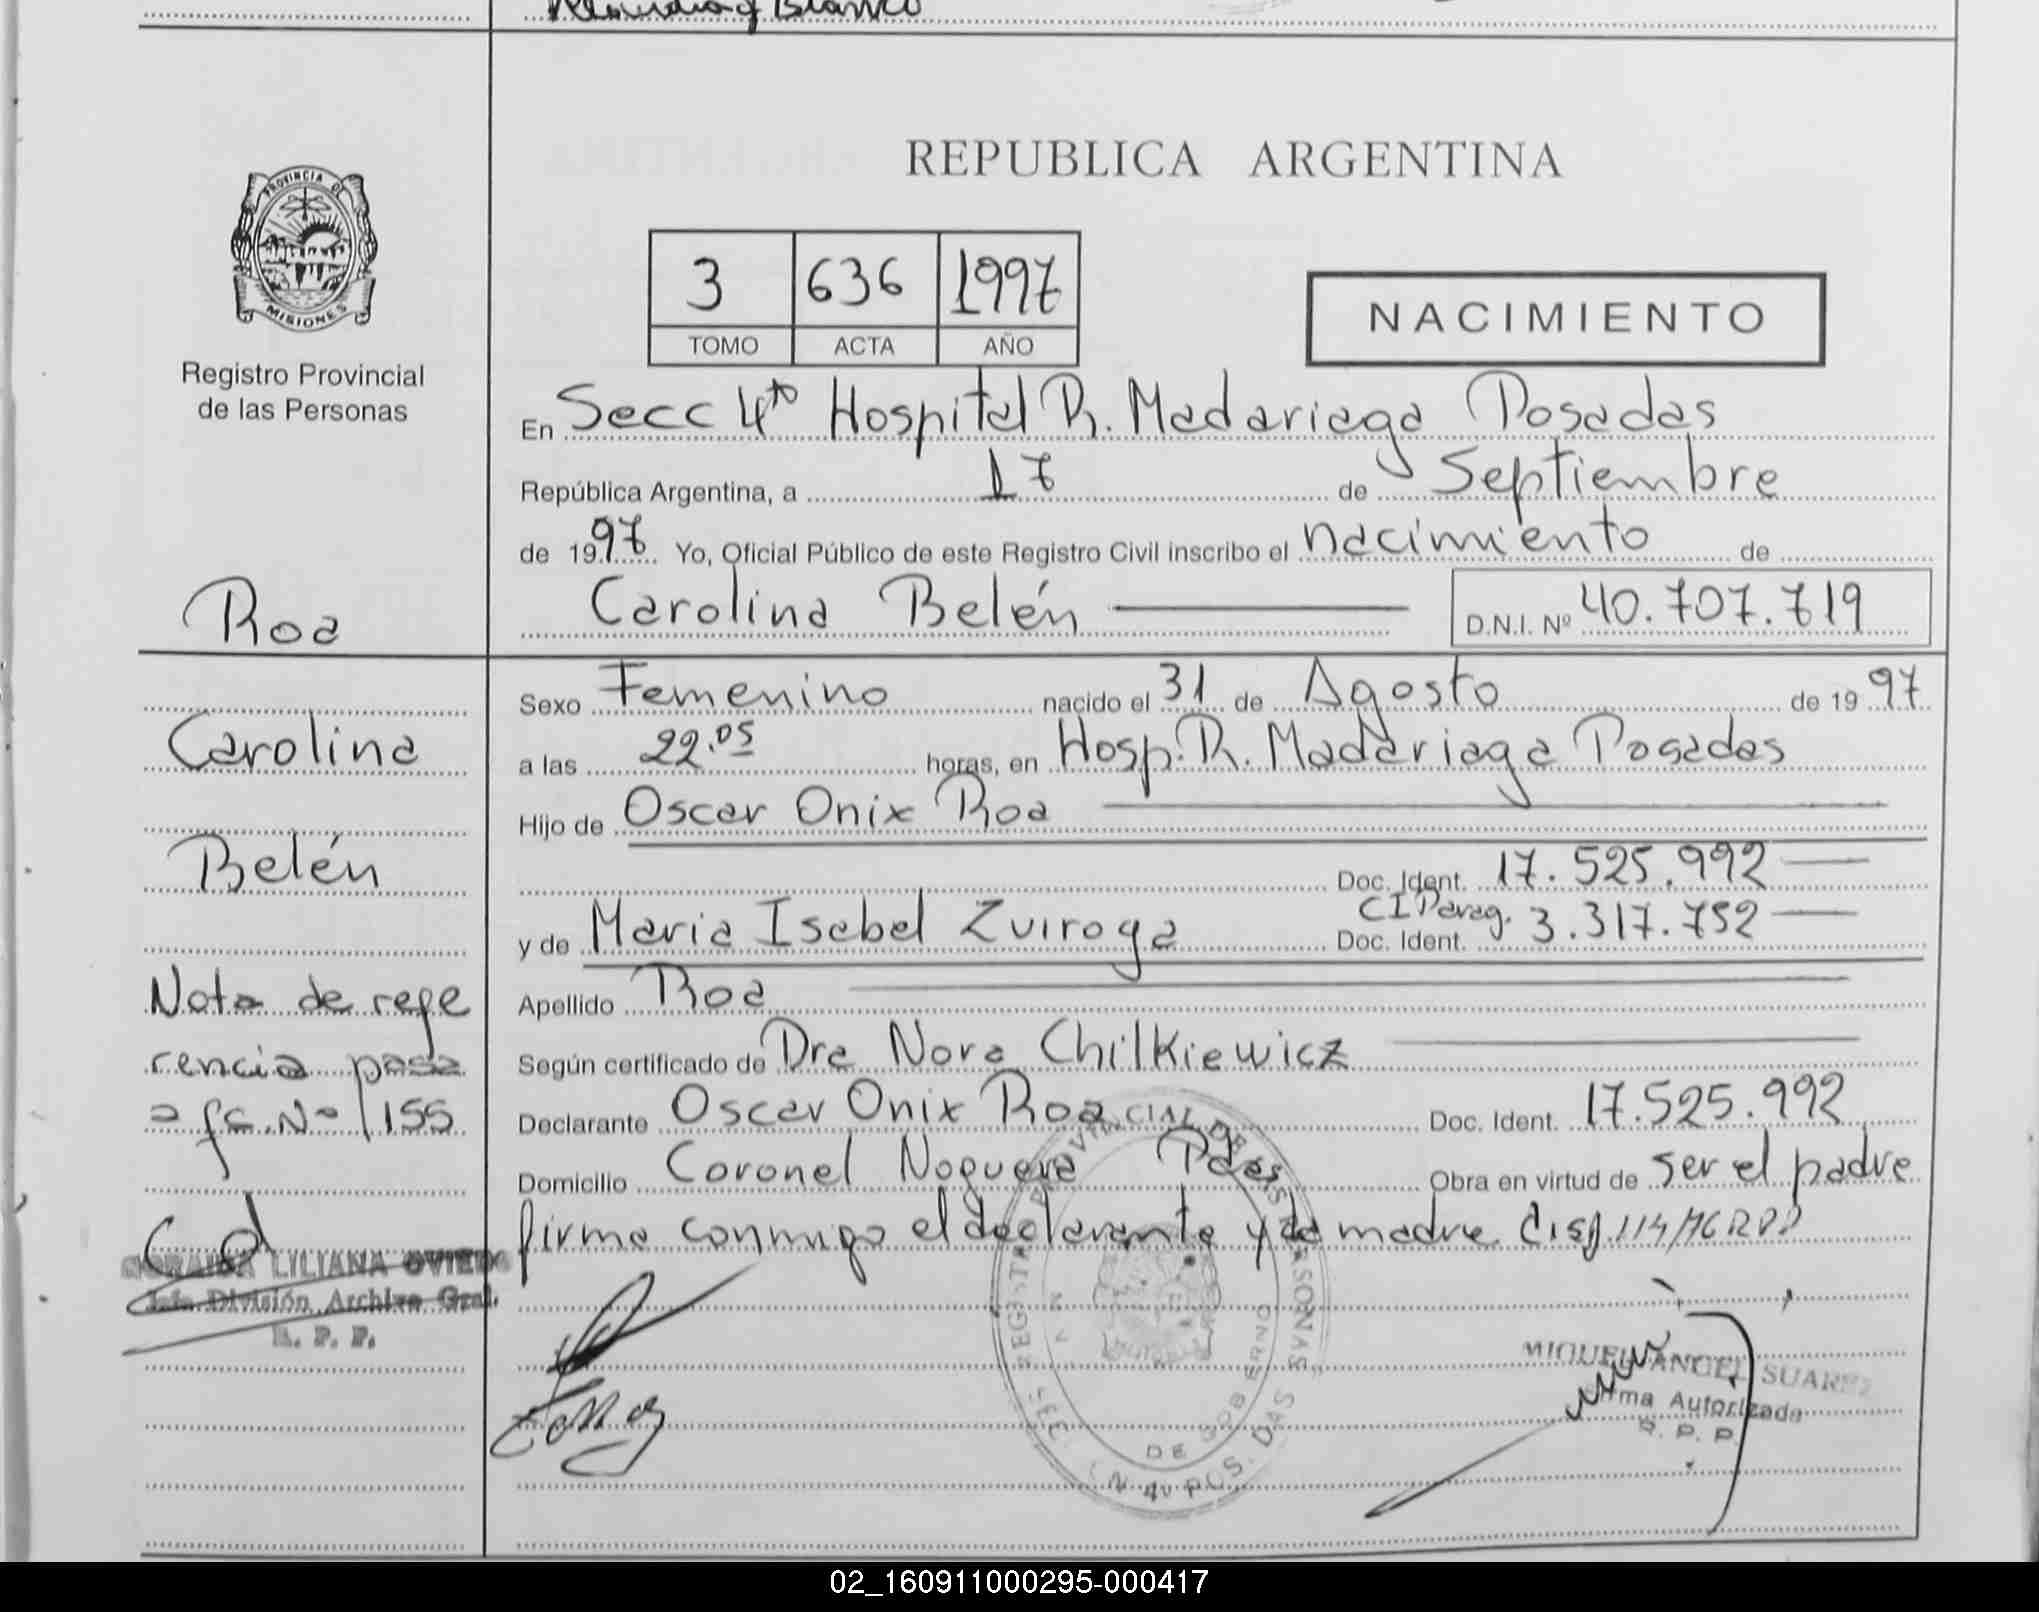 Blanco
PROVINCIA DE
MISIONES
Registro Provincial
de las Personas
REPUBLICA ARGENTINA
3 636 1997
TOMO ACTA AÑO
NACIMIENTO
En Secc 4ta Hospital R. Madariaga Posadas
República Argentina, a 17 de Septiembre
de 1997 Yo, Oficial Público de este Registro Civil inscribo el nacimiento de
Carolina Belén D.N.I. Nº 40.707.719
Roa
Carolina
Belén
Nota de refe
rencia pasa
a fs. Nº 155
SORAIDA LILIANA OVIEDO
Jefa División Archivo Gral.
R. P. P.
Sexo Femenino nacido el 31 de Agosto de 1997
a las 22.05 horas, en Hosp. R. Madariaga Posadas
Hijo de Oscar Onix Roa
Doc. Ident. 17.525.992
CI Parag.
y de Maria Isabel Zuiroga Doc. Ident. 3.317.752
Apellido Roa
Según certificado de Dra Nora Chilkiewicz
Declarante Oscar Onix Roa Doc. Ident. 17.525.992
Domicilio Coronel Noguera Pdas Obra en virtud de ser el padre
firma conmigo el declarante y la madre Disp. 114/96 RPP
MIGUEL ANGEL SUAREZ
Firma Autorizada
R. P. P.
02_160911000295-000417